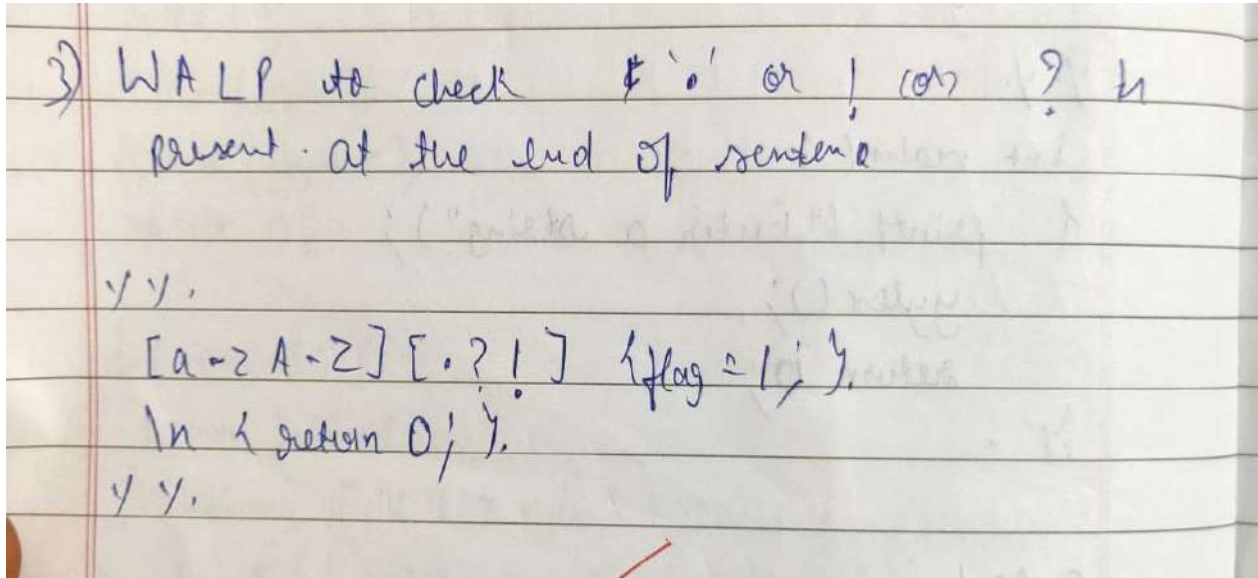 3) WALP to check '.' or ! (or) ? is
present at the end of sentence
%%
[a-z A-Z][.?!] {flag = 1; }
\n { return 0; }
%%